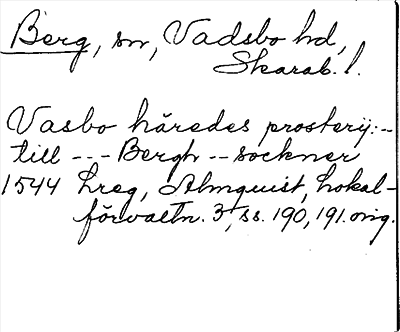 Berg, sn, Vadsbo hd,
Skarab. l.
Vasbo häredes prosterij:--
till --- Bergh -- sockner
1544 Lreg, Almquist, Lokal-
förvaltn. 3, ss. 190, 191. orig.